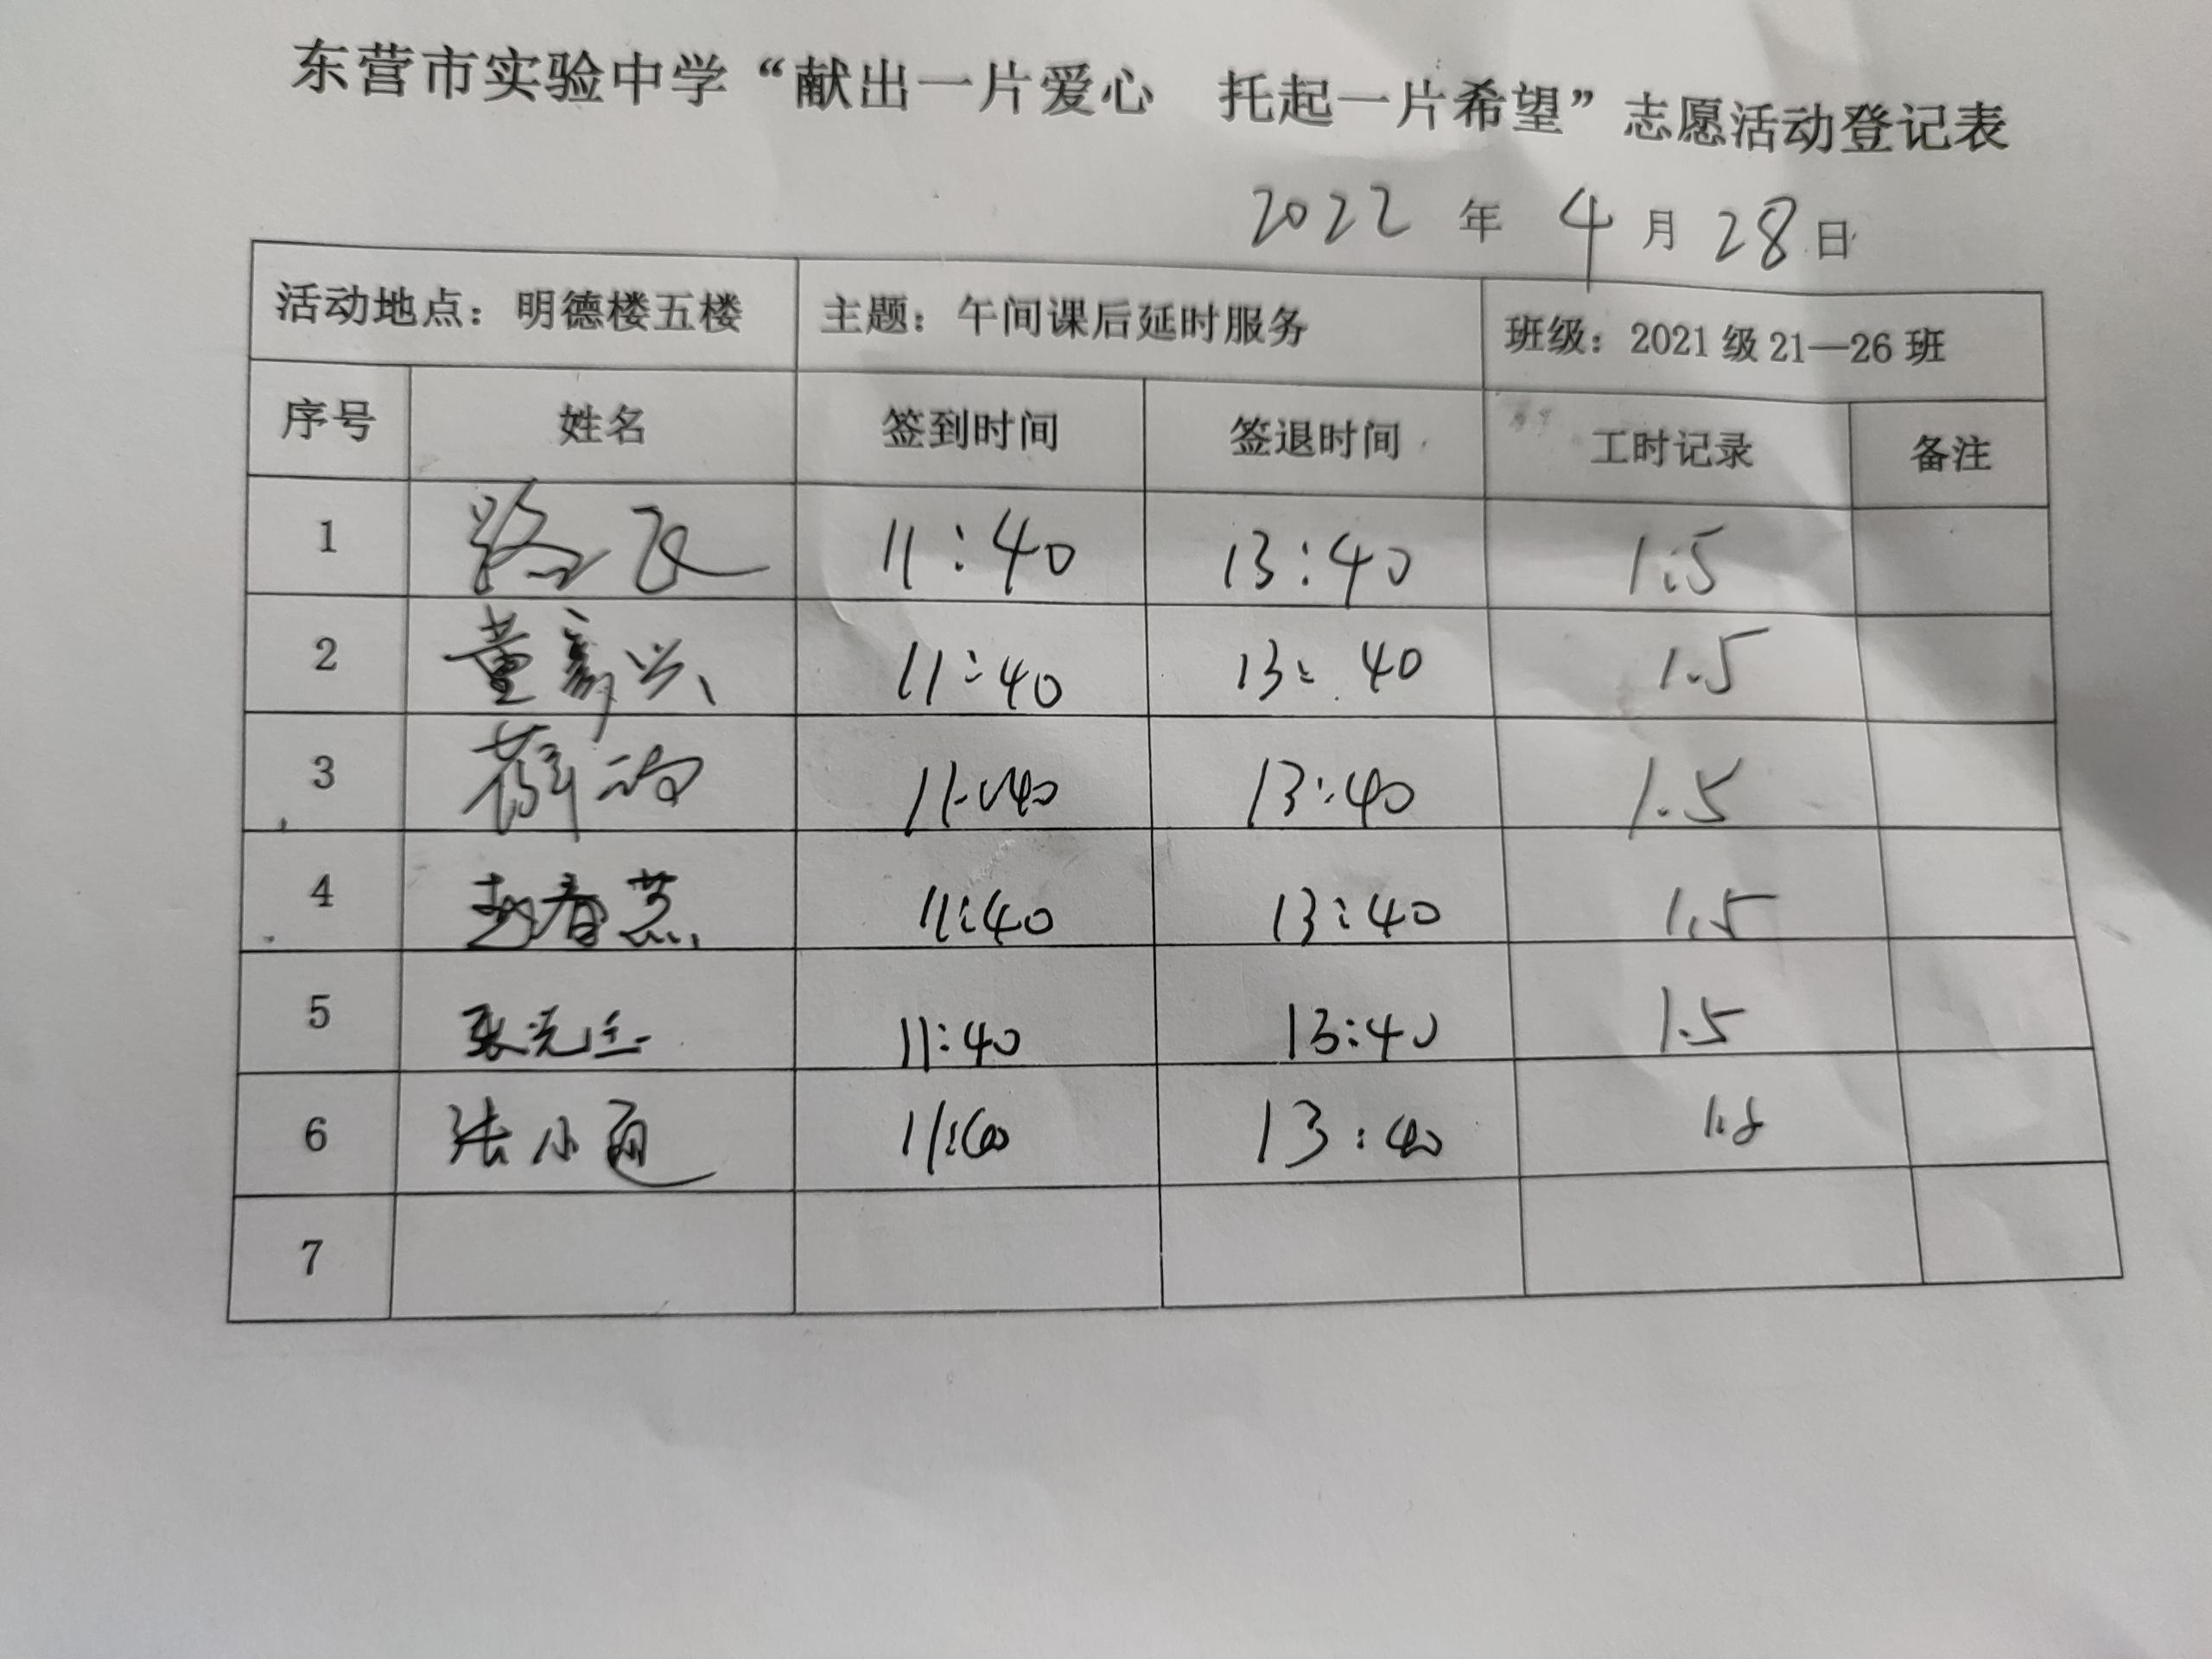 东营市实验中学“献出一片爱心 托起一片希望”志愿活动登记表
2022 年 4 月 28 日
活动地点：明德楼五楼 主题：午间课后延时服务 班级：2021 级 21—26 班
序号 姓名 签到时间 签退时间 工时记录 备注
1 11:40 13:40 1.5
2 董 兴 11:40 13:40 1.5
3 薛 11:40 13:40 1.5
4 赵春燕 11:40 13:40 1.5
5 张 11:40 13:40 1.5
6 张小 13:40
7